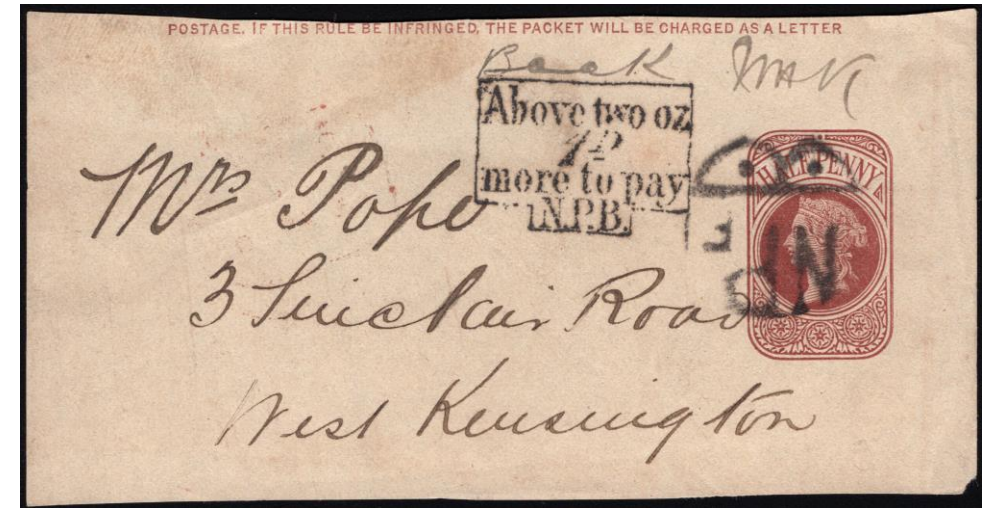 POSTAGE. IF THIS RULE BE INFRINGED, THE PACKET WILL BE CHARGED AS A LETTER
Back
Above two oz
1D
more to pay
N.P.B.
HALF PENNY
N
Mrs Pope
3 Sinclair Road
West Kensington